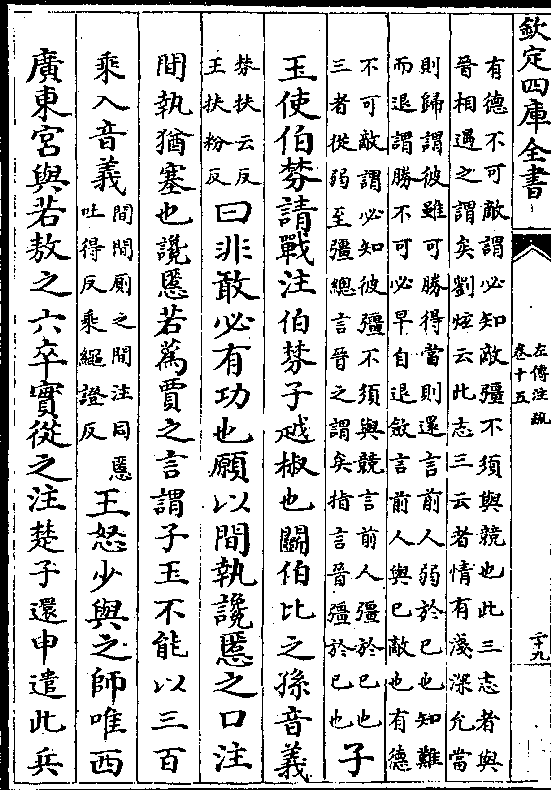 欽定四庫全書
左傳注疏
卷十五
二十九
有德不可敵謂必知敵彊不須與競也此三志者與
晉相遇之謂矣劉炫云此志三云者情有淺深允當
則歸謂彼雖可勝得當則還言前人弱於已也知難
而退謂勝不可必早自退斂言前人與已敵也有德
不可敵謂必知彼彊不須與競言前人彊於已也
三者從弱至彊總言晉之謂矣指言晉彊於已也
子
玉使伯棼請戰注伯棼子越椒也鬭伯比之孫音義
棼扶云反
王扶粉反
曰非敢必有功也願以間執讒慝之口注
間執猶塞也讒慝若蒍賈之言謂子玉不能以三百
乘入音義
間間厠之間注同慝
吐得反乘繩證反
王怒少與之師唯西
廣東宮與若敖之六卒實從之注楚子還申遣此兵